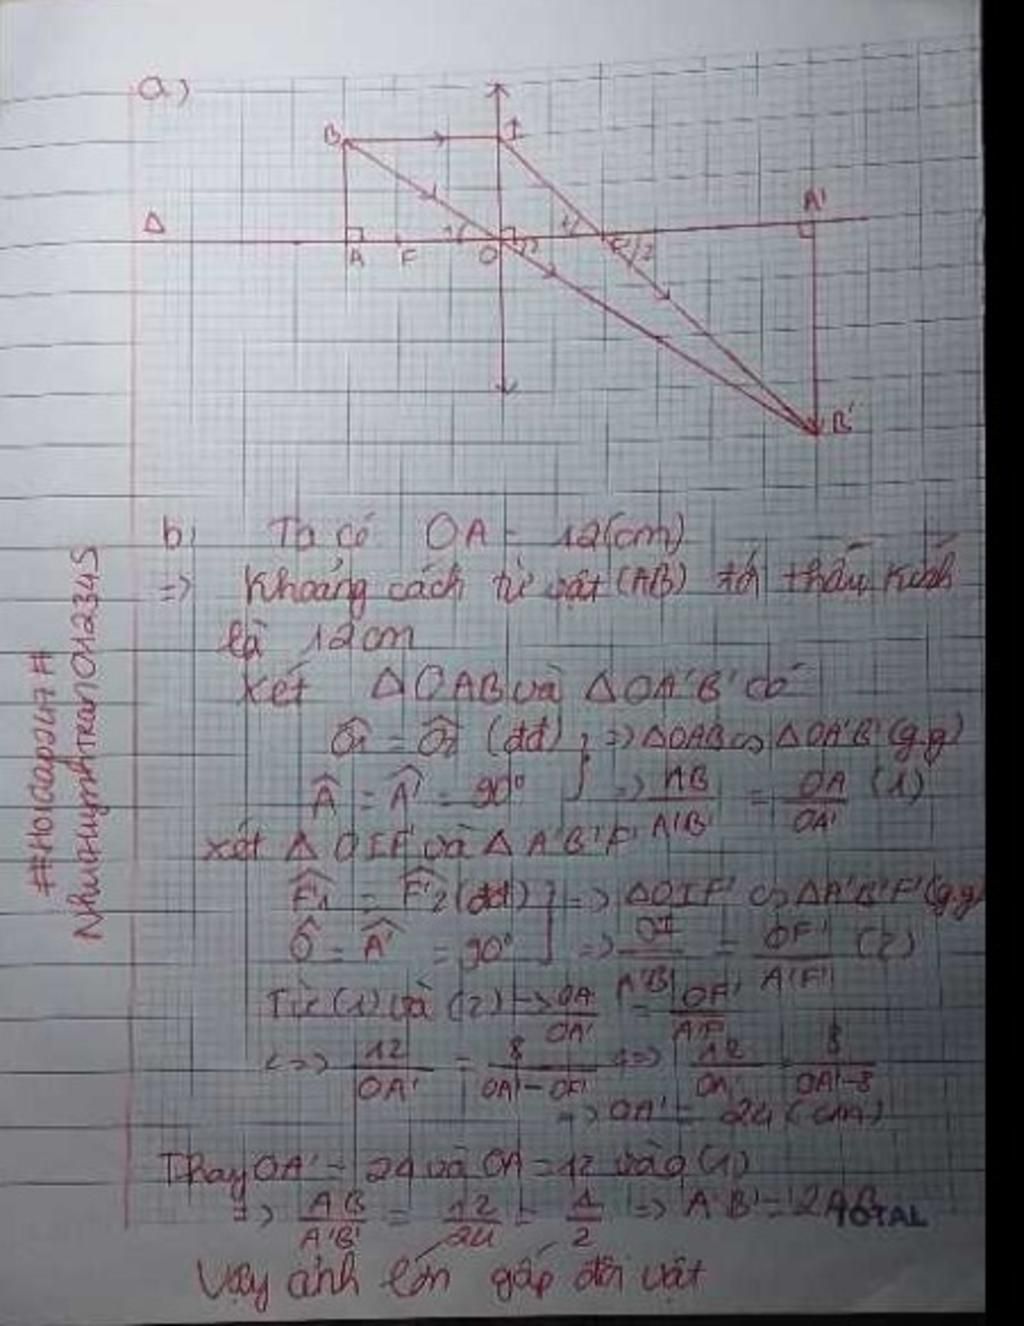 a)
B
I
A'
Δ
A F O F'
B'
b, Ta có OA = 12(cm)
=> Khoảng cách từ vật (AB) tới thấu kính
là 12 cm
xét ΔOAB và ΔOA'B' có
Ô1 = Ô2 (đđ) } => ΔOAB ∽ ΔOA'B' (g.g)
Â = Â' = 90° } => AB/A'B' = OA/OA' (1)
xét ΔOIF' và ΔA'B'F'
F̂'1 = F̂'2 (đđ) } => ΔOIF' ∽ ΔA'B'F' (g.g)
Ô = Â' = 90° } => OI/A'B' = OF'/A'F' (2)
Từ (1) và (2) => OA/OA' = OF'/A'F'
<=> 12/OA' = 8/OA'-OF' <=> 12/OA' = 8/OA'-8
=> OA' = 24 (cm)
Thay OA' = 24 và OA = 12 vào (1)
=> AB/A'B' = 12/24 = 1/2 => A'B' = 2AB
TOTAL
Vậy ảnh lớn gấp đôi vật
##Hoidap247#
Nhuhuynhtran012345